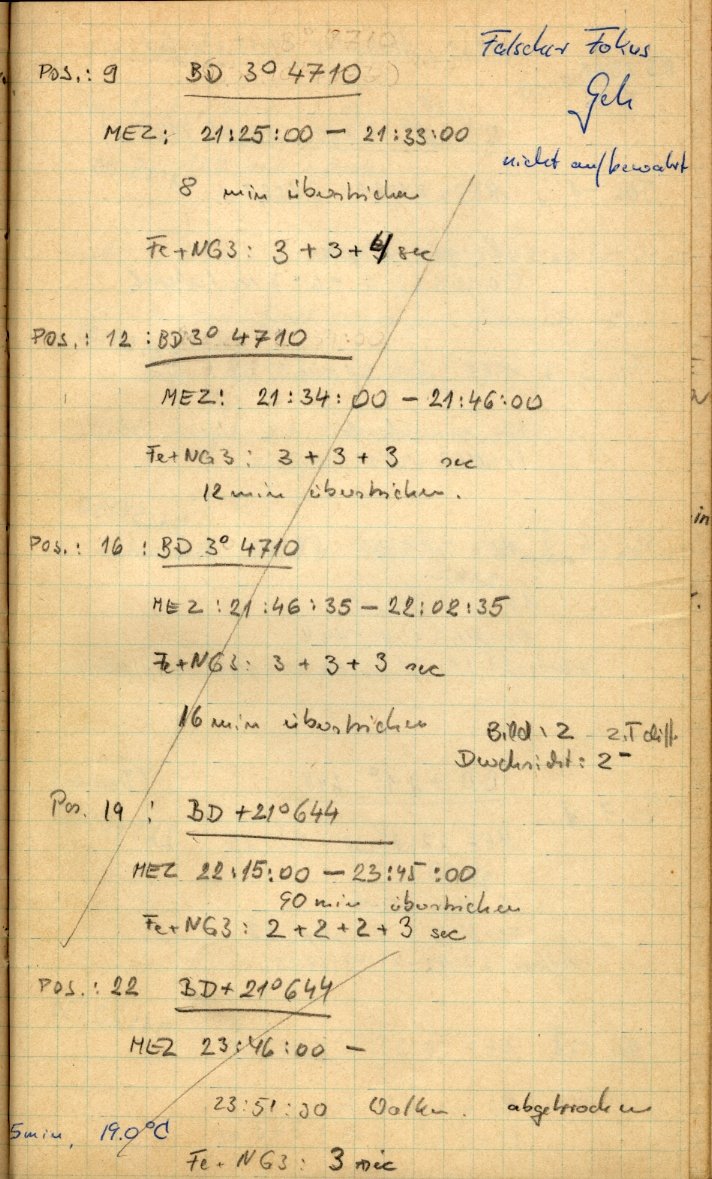 Falscher Fokus
Geh
nicht aufbewahrt
Pos.: 9 BD 3° 4710
MEZ: 21:25:00 – 21:33:00
8 min überstrichen
Fe+NG3: 3 + 3 + 4 sec
Pos.: 12 : BD 3° 4710
MEZ: 21:34:00 – 21:46:00
Fe+NG3: 3 + 3 + 3 sec
12 min überstrichen.
Pos.: 16 : BD 3° 4710
MEZ: 21:46:35 – 22:02:35
Fe+NG3: 3 + 3 + 3 sec
16 min überstrichen
Bild: 2 z.T diff.
Durchsicht: 2⁻
Pos. 19 : BD +21°644
MEZ 22:15:00 – 23:45:00
90 min überstrichen
Fe+NG3: 2 + 2 + 2 + 3 sec
Pos.: 22 BD+21°644
MEZ 23:46:00 –
23:51:00 Wolken. abgebrochen
5min, 19.0°C
Fe+NG3: 3 sec